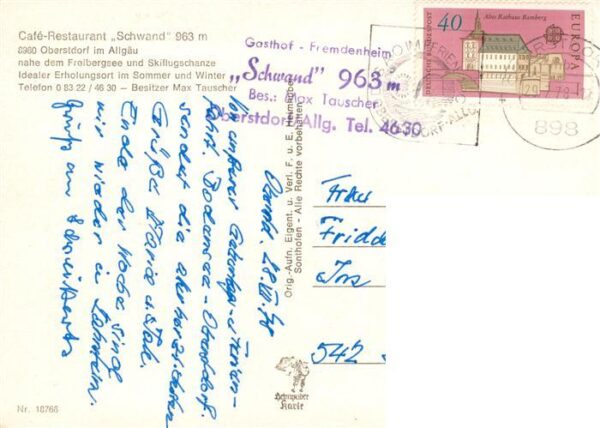 Café-Restaurant „Schwand" 963 m
8980 Oberstdorf im Allgäu
nahe dem Freibergsee und Skiflugschanze
Idealer Erholungsort im Sommer und Winter
Telefon 0 83 22 / 46 30 – Besitzer Max Tauscher
Gasthof - Fremdenheim
„Schwand" 963 m
Bes.: Max Tauscher
Oberstdorf/Allg. Tel. 4630
40
DEUTSCHE BUNDESPOST
Altes Rathaus Bamberg
EUROPA
898
Oberstd. 28.VII.78
Von unserer Geburtstags- u. Ferien-
fahrt. Bodensee - Oberstdorf.
sendet die allerherzlichsten
Grüße Maria u.
Ende der Woche sind
wir wieder in Lahnstein.
Grüße an
Orig.-Aufn. Eigent. u. Verl. F. u. E. Heimhuber
Sonthofen - Alle Rechte vorbehalten
542
Heimhuber
Karte
Nr. 18768